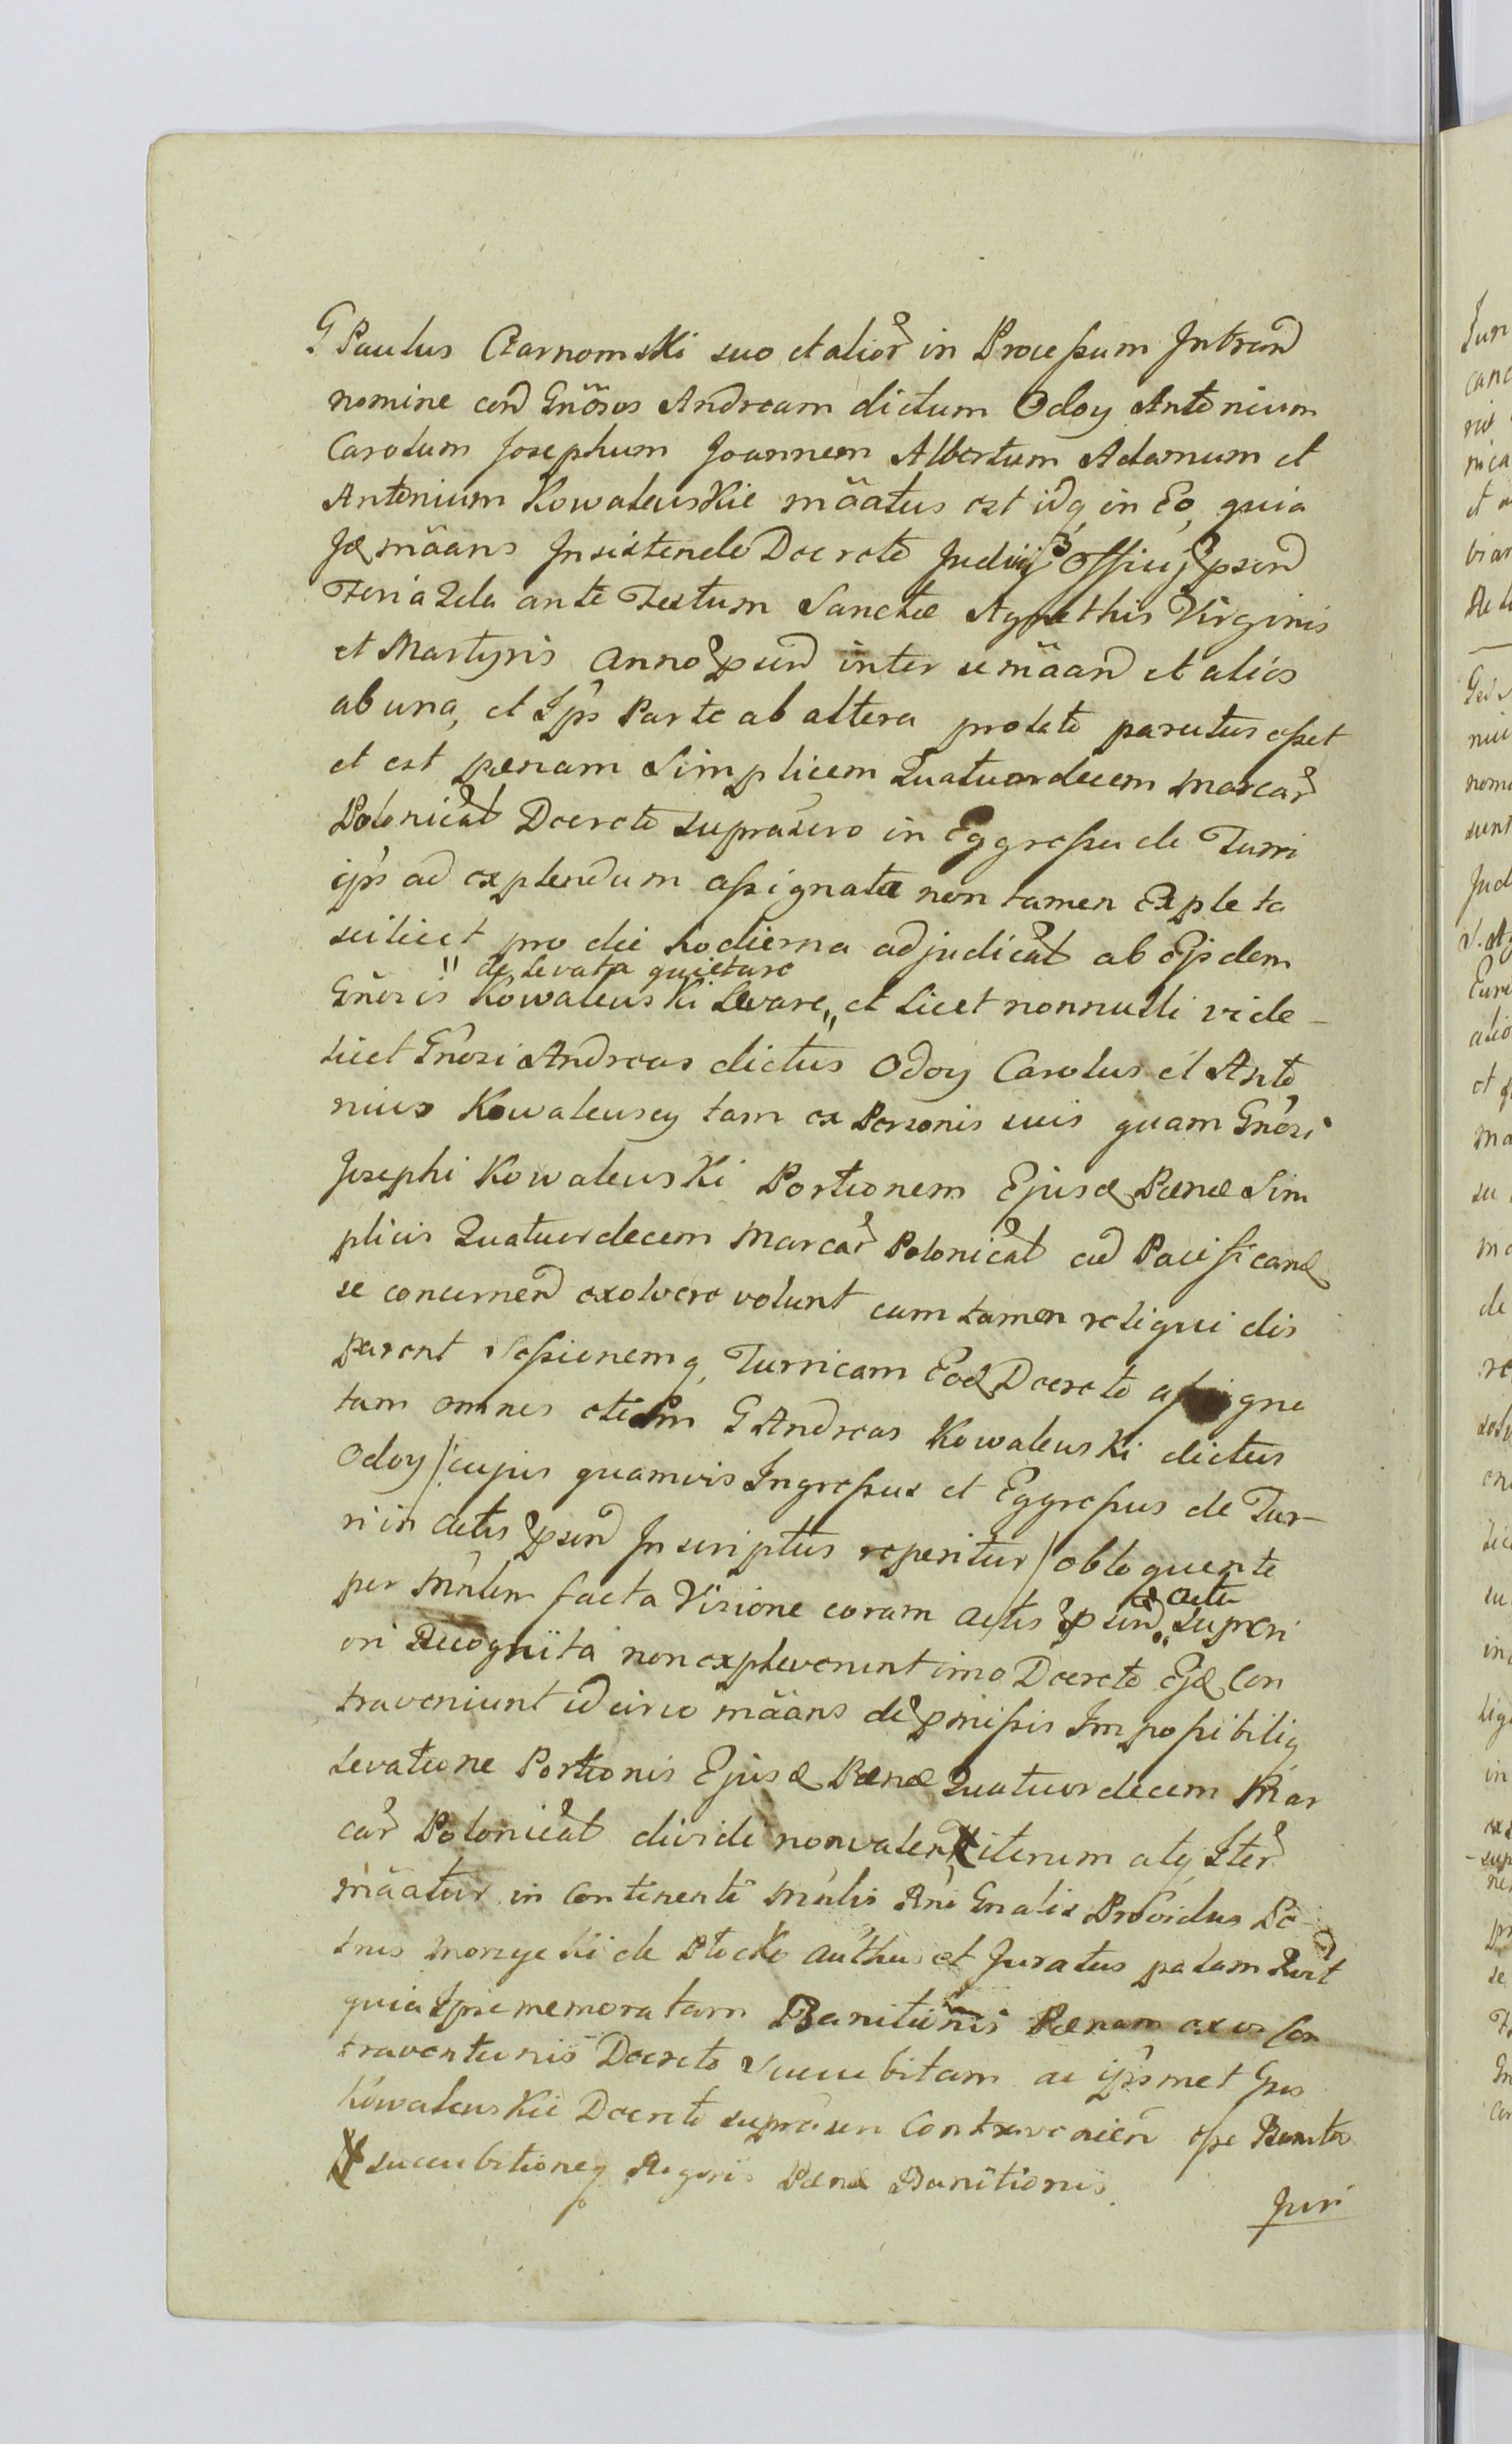 G Paulus Czarnomski suo et alior in Processum Intrand
nomine cord Gnosos Andream dictum Odoy Antonium
Carolum Josephum Joannem Albertum Adamum et
Antonium Kowalewskie mãatus est idq in Eo, quia
Id mãans Insistendo Decreto Judicij Officij psend
Feria 2da ante Festum Sanctæ Agnethis Virginis
et Martyris Anno psend inter se mãand et alios
ab una, et Ips Parte ab altera prolato paratus esset
et est pœnam Simplicem Quatuordecem Marcar
Polonicat Decreto supraseno in Eggressu de Turri
ips ad explendum assignata non tamen Expleta
scilicet pro die hodierna adjudicat ab Eisdem
" de levata quietare
Gnosis Kowalewski Levare „ et licet nonnulli vide-
licet Gnosi Andreas dictus Odoy Carolus et Anto
nius Kowalewscy tam ex Personis suis quam Gnosi
Josephi Kowalewski Portionem Ejusd Pœnæ Sim
plicis Quatuordecem Marcar Polonicat ad Pacificand
se concernend exolvere volunt cum tamen reliqui dis
parent Sessionemq, Turricam Eod Decreto assigna
tam omnes etiam G Andreas Kowalewski dictus
Odoy /: cujus quamvis Ingressus et Eggressus de Tur-
ri in Actis psend Inscriptus reperitur / obloquente
actu
per Mnlem facta Visione coram Actis psend „ superi
ori Recognita non expleverunt imo Decreto Ejd Con
traveniunt idcirco mãans de pmissis Impossibiliq
Levatione Portionis Ejusd Pœnæ Quatuordecem Mar
car Polonicat dividi non valen iterum atq Iter
mãatur in Continenti Mnlis Rni Gnalis Providus Pe-
trus Morzycki de Plocko authus et Juratus palam Rvit
quia Ipse memoratam Banitionis Pœnam ex vi Con
traventionis Decreto Succubitam ac ipsmet Gnos
Kowalewskie Decreto suprasen Contravenien esse Banitos
succubitioneq Rigoris Pœnæ Banitionis.
Juri